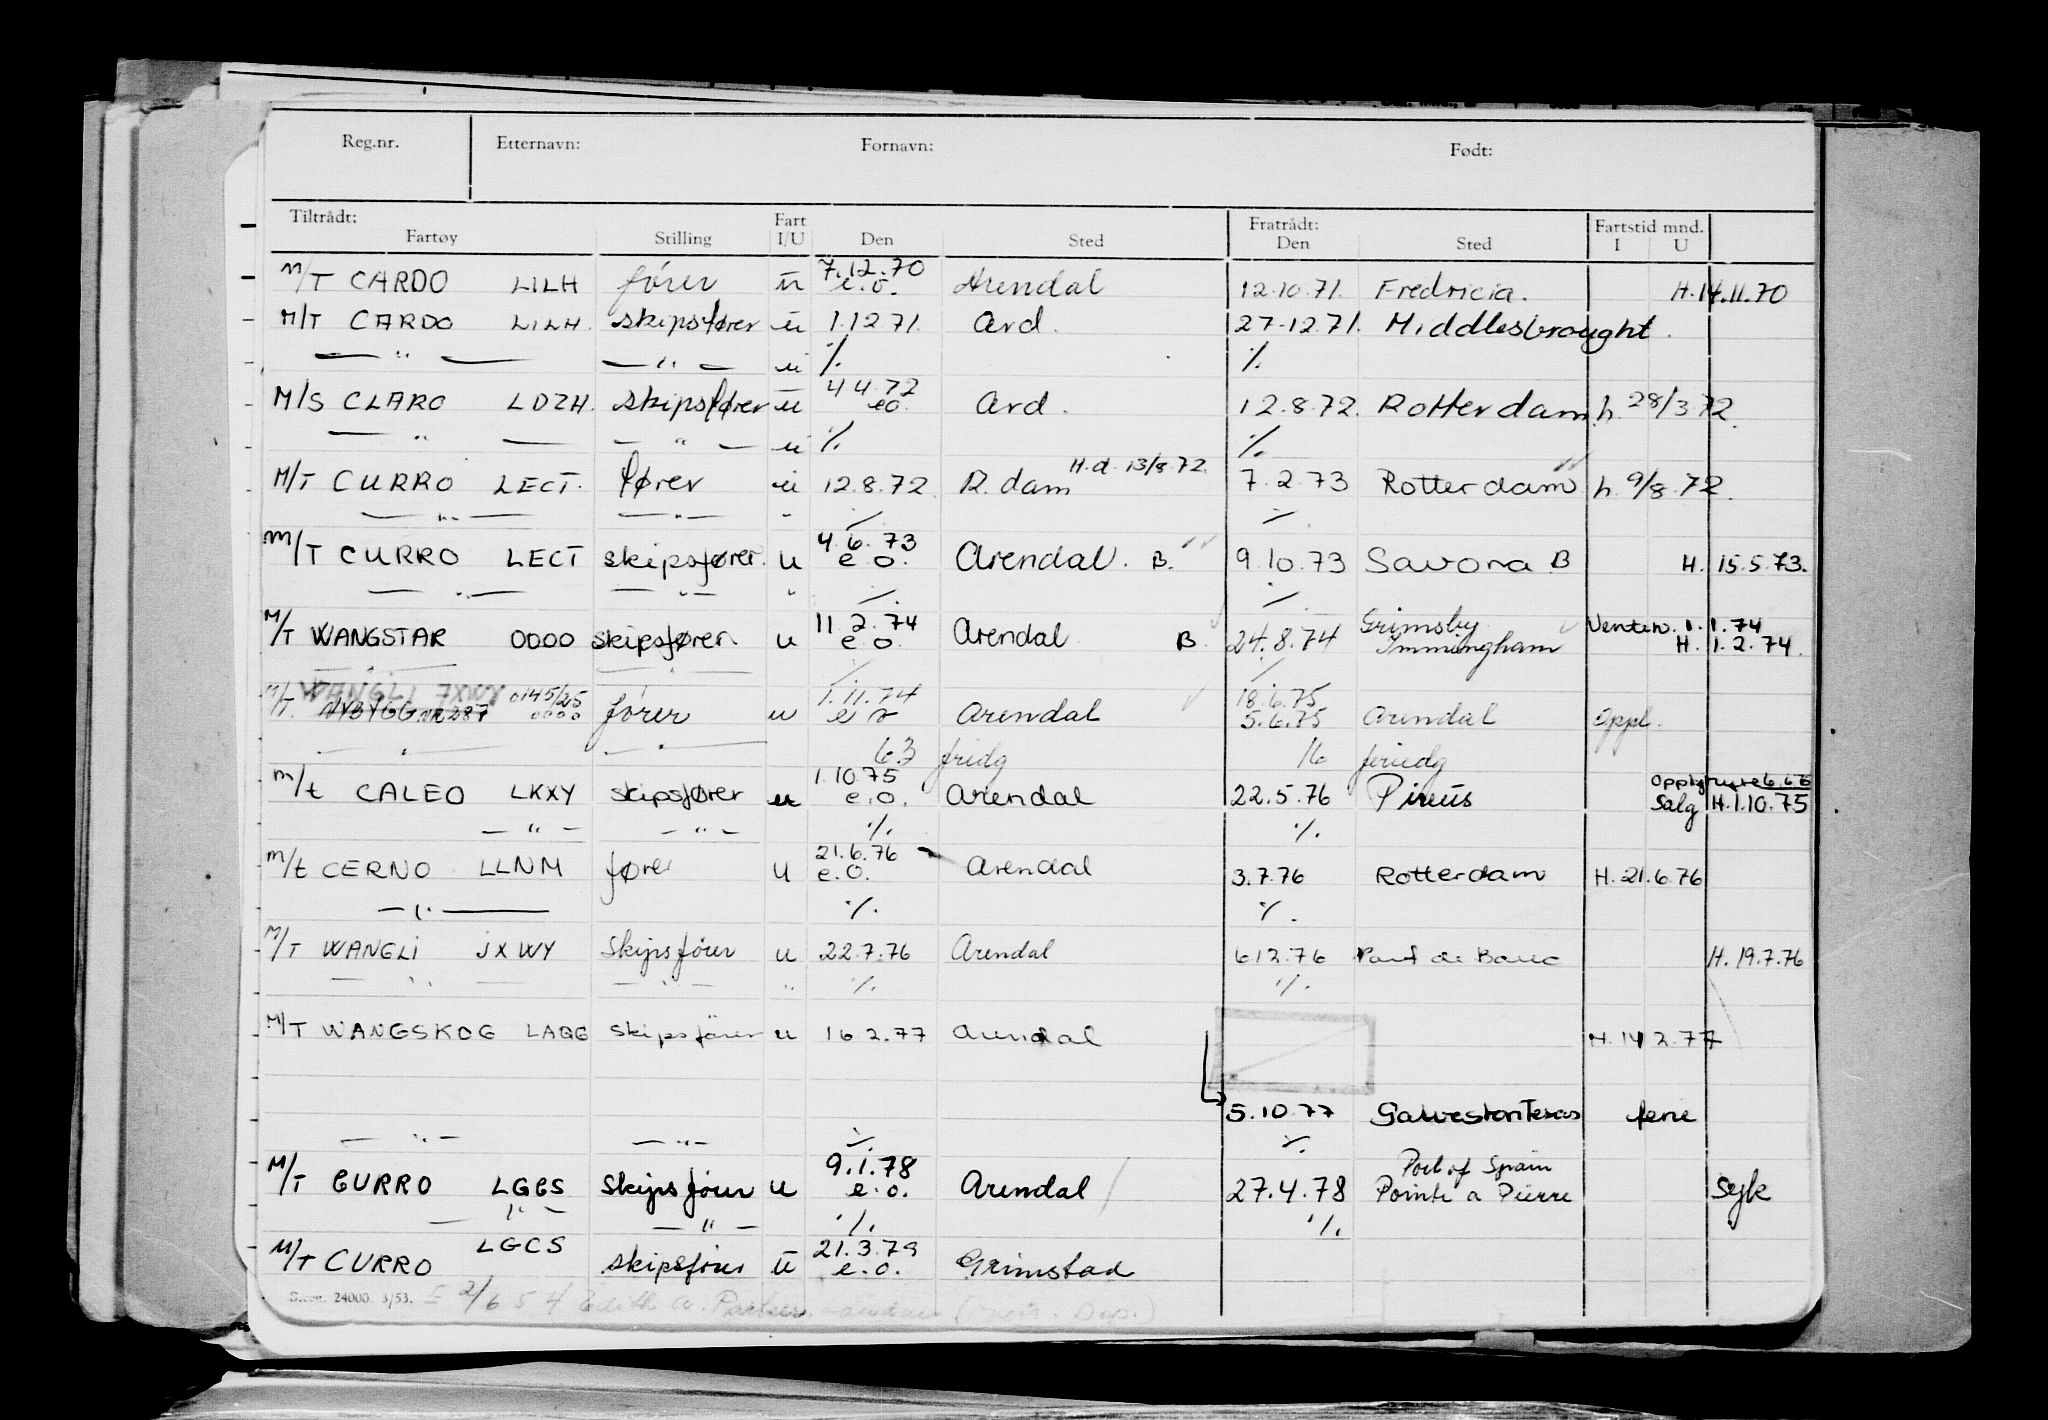 Reg.nr. Etternavn: Fornavn: Født:
Tiltrådt: Fart Fratrådt: Fartstid mnd.
Fartøy Stilling I/U Den Sted Den Sted I U
M/T CARDO LILH fører u 7.12.70 e.o. Arendal 12.10.71. Fredricia. H.14.11.70
M/T CARDO LILH. skipsfører u 1.12 71. Ard. 27.12.71. Middlesbrought.
— " — — " — u % %
M/S CLARO LDZH. skipsfører u 4 4.72 eo. Ard. 12.8.72. Rotterdam h. 28/3.72.
— " — — " — u % %
H.d. 13/8.72.
M/T CURRO LECT. fører u 12.8.72. R.dam 7.2.73 Rotterdam h. 9/8.72.
— " — — " — " % %
M/T CURRO LECT skipsfører. u 4.6.73 e o. Arendal. B. 9.10.73 Savona B H. 15.5.73.
— " — — " — " % %
Grimsby Venten. 1.1.74
M/T WANGSTAR 0000 skipsfører. u 11.2.74 e o. Arendal B. 24.8.74 Immingham H. 1.2.74.
— " — — " — % %
WANGLI JXWY 0145/25 1.11.74 18.6.75
M/T. NYBYGG NR 287 0000 fører u e o Arendal 5.6.75 Arendal Oppl.
— " — — " — 63 fridg 16 feriedg
M/t CALEO LKXY skipsfører u 1.10.75 e.o. Arendal 22.5.76 Pireus Salg H.1.10.75
— " — — " — % %
M/t CERNO LLNM fører u 21.6.76 e.o. Arendal 3.7.76 Rotterdam H. 21.6.76
— " — % %
M/T WANGLI JXWY Skipsfører u 22.7.76 Arendal 6.12.76 Port de Bouc H. 19.7.76
— " — — " — " % %
M/T WANGSKOG LAGG skipsfører u 16.2.77 Arendal H. 14 2.77
5.10.77 Galveston Texas ferie
— " — — " — % %
Port of Spain
M/T CURRO LGCS Skipsfører u 9.1.78 e.o. Arendal 27.4.78 Pointe a Pierre Syk
— " — — " — % %
M/T CURRO LGCS skipsfører u 21.3.79 e.o. Grimstad
24000. 3/53. E 2/6 54 Edith A.